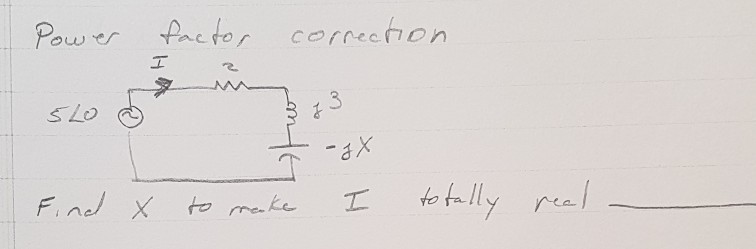 Power factor correction
I 2
5∠0 j3
-jX
Find X to make I totally real